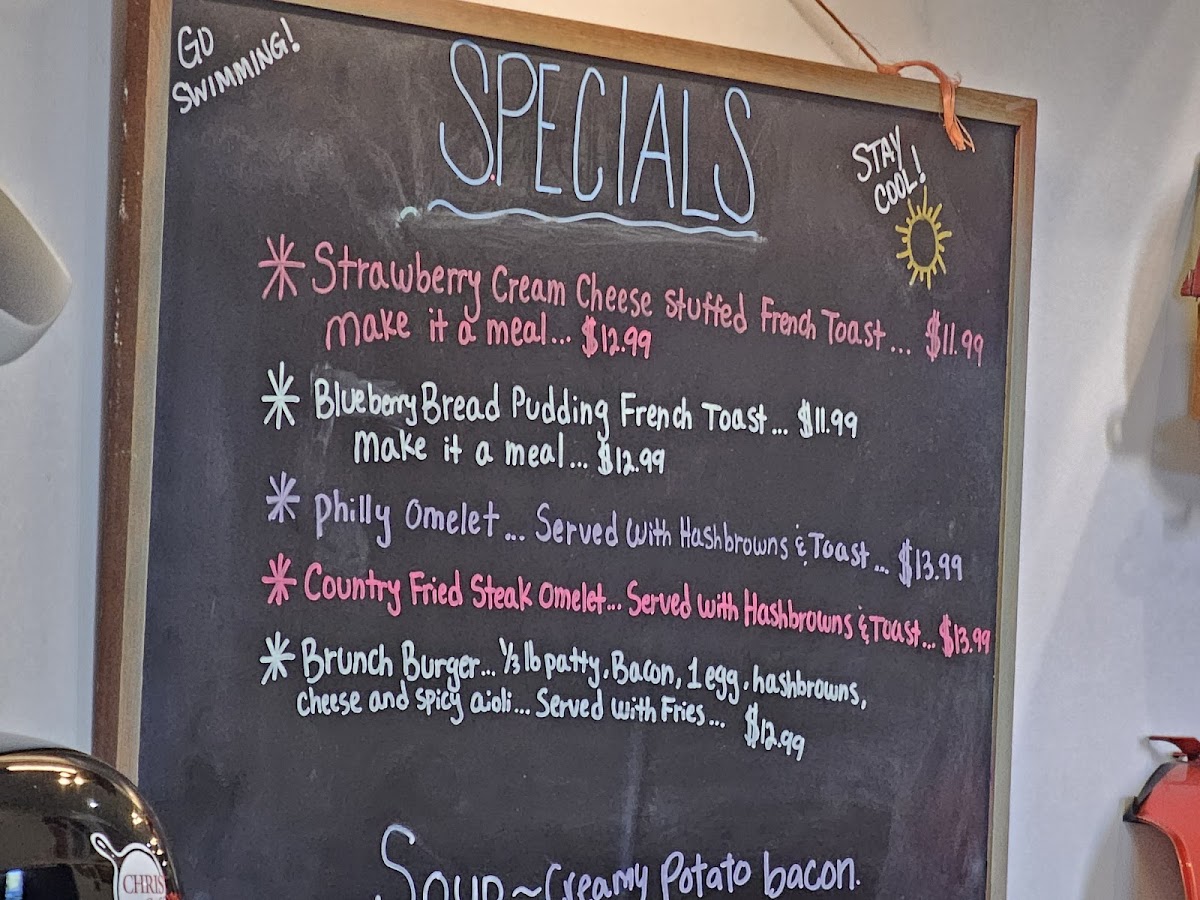 GO
SWIMMING!
SPECIALS
STAY
COOL!
Strawberry Cream Cheese Stuffed French Toast... $11.99
Make it a meal... $12.99
Blueberry Bread Pudding French Toast... $11.99
Make it a meal... $12.99
Philly Omelet... Served with Hashbrowns & Toast... $13.99
Country Fried Steak Omelet... Served with Hashbrowns & Toast... $13.99
Brunch Burger... 1/3 lb patty, Bacon, 1 egg, hashbrowns,
cheese and spicy aioli... Served with Fries... $12.99
Soup ~ Creamy Potato bacon.
CHRIS